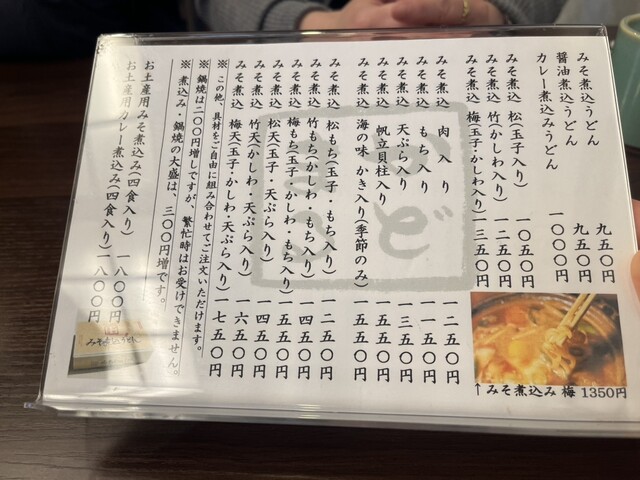 みそ煮込うどん 九五〇円
醤油煮込うどん 九五〇円
カレー煮込みうどん 一〇〇〇円
みそ煮込 松(玉子入り) 一〇五〇円
みそ煮込 竹(かしわ入り) 一二五〇円
みそ煮込 梅(玉子・かしわ入り) 一三五〇円
みそ煮込 肉入り 一二五〇円
みそ煮込 もち入り 一一五〇円
みそ煮込 天ぷら入り 一三五〇円
みそ煮込 帆立貝柱入り 一五五〇円
みそ煮込 海の味 かき入り(季節のみ) 一五五〇円
みそ煮込 松もち(玉子・もち入り) 一二五〇円
みそ煮込 竹もち(かしわ・もち入り) 一四五〇円
みそ煮込 梅もち(玉子かしわ・もち入り) 一五五〇円
みそ煮込 松天(玉子・天ぷら入り) 一四五〇円
みそ煮込 竹天(かしわ・天ぷら入り) 一六五〇円
みそ煮込 梅天(玉子・かしわ・天ぷら入り) 一七五〇円
※ この他、具材をご自由に組み合わせてご注文いただけます。
※ 鍋焼は二〇〇円増しですが、繁忙時はお受けできません。
※ 煮込み・鍋焼の大盛は、三〇〇円増です。
お土産用みそ煮込み(四食入り) 一八〇〇円
お土産用カレー煮込み(四食入り) 一八〇〇円
↑みそ煮込み 梅 1350円
みそ煮込うどん
かど